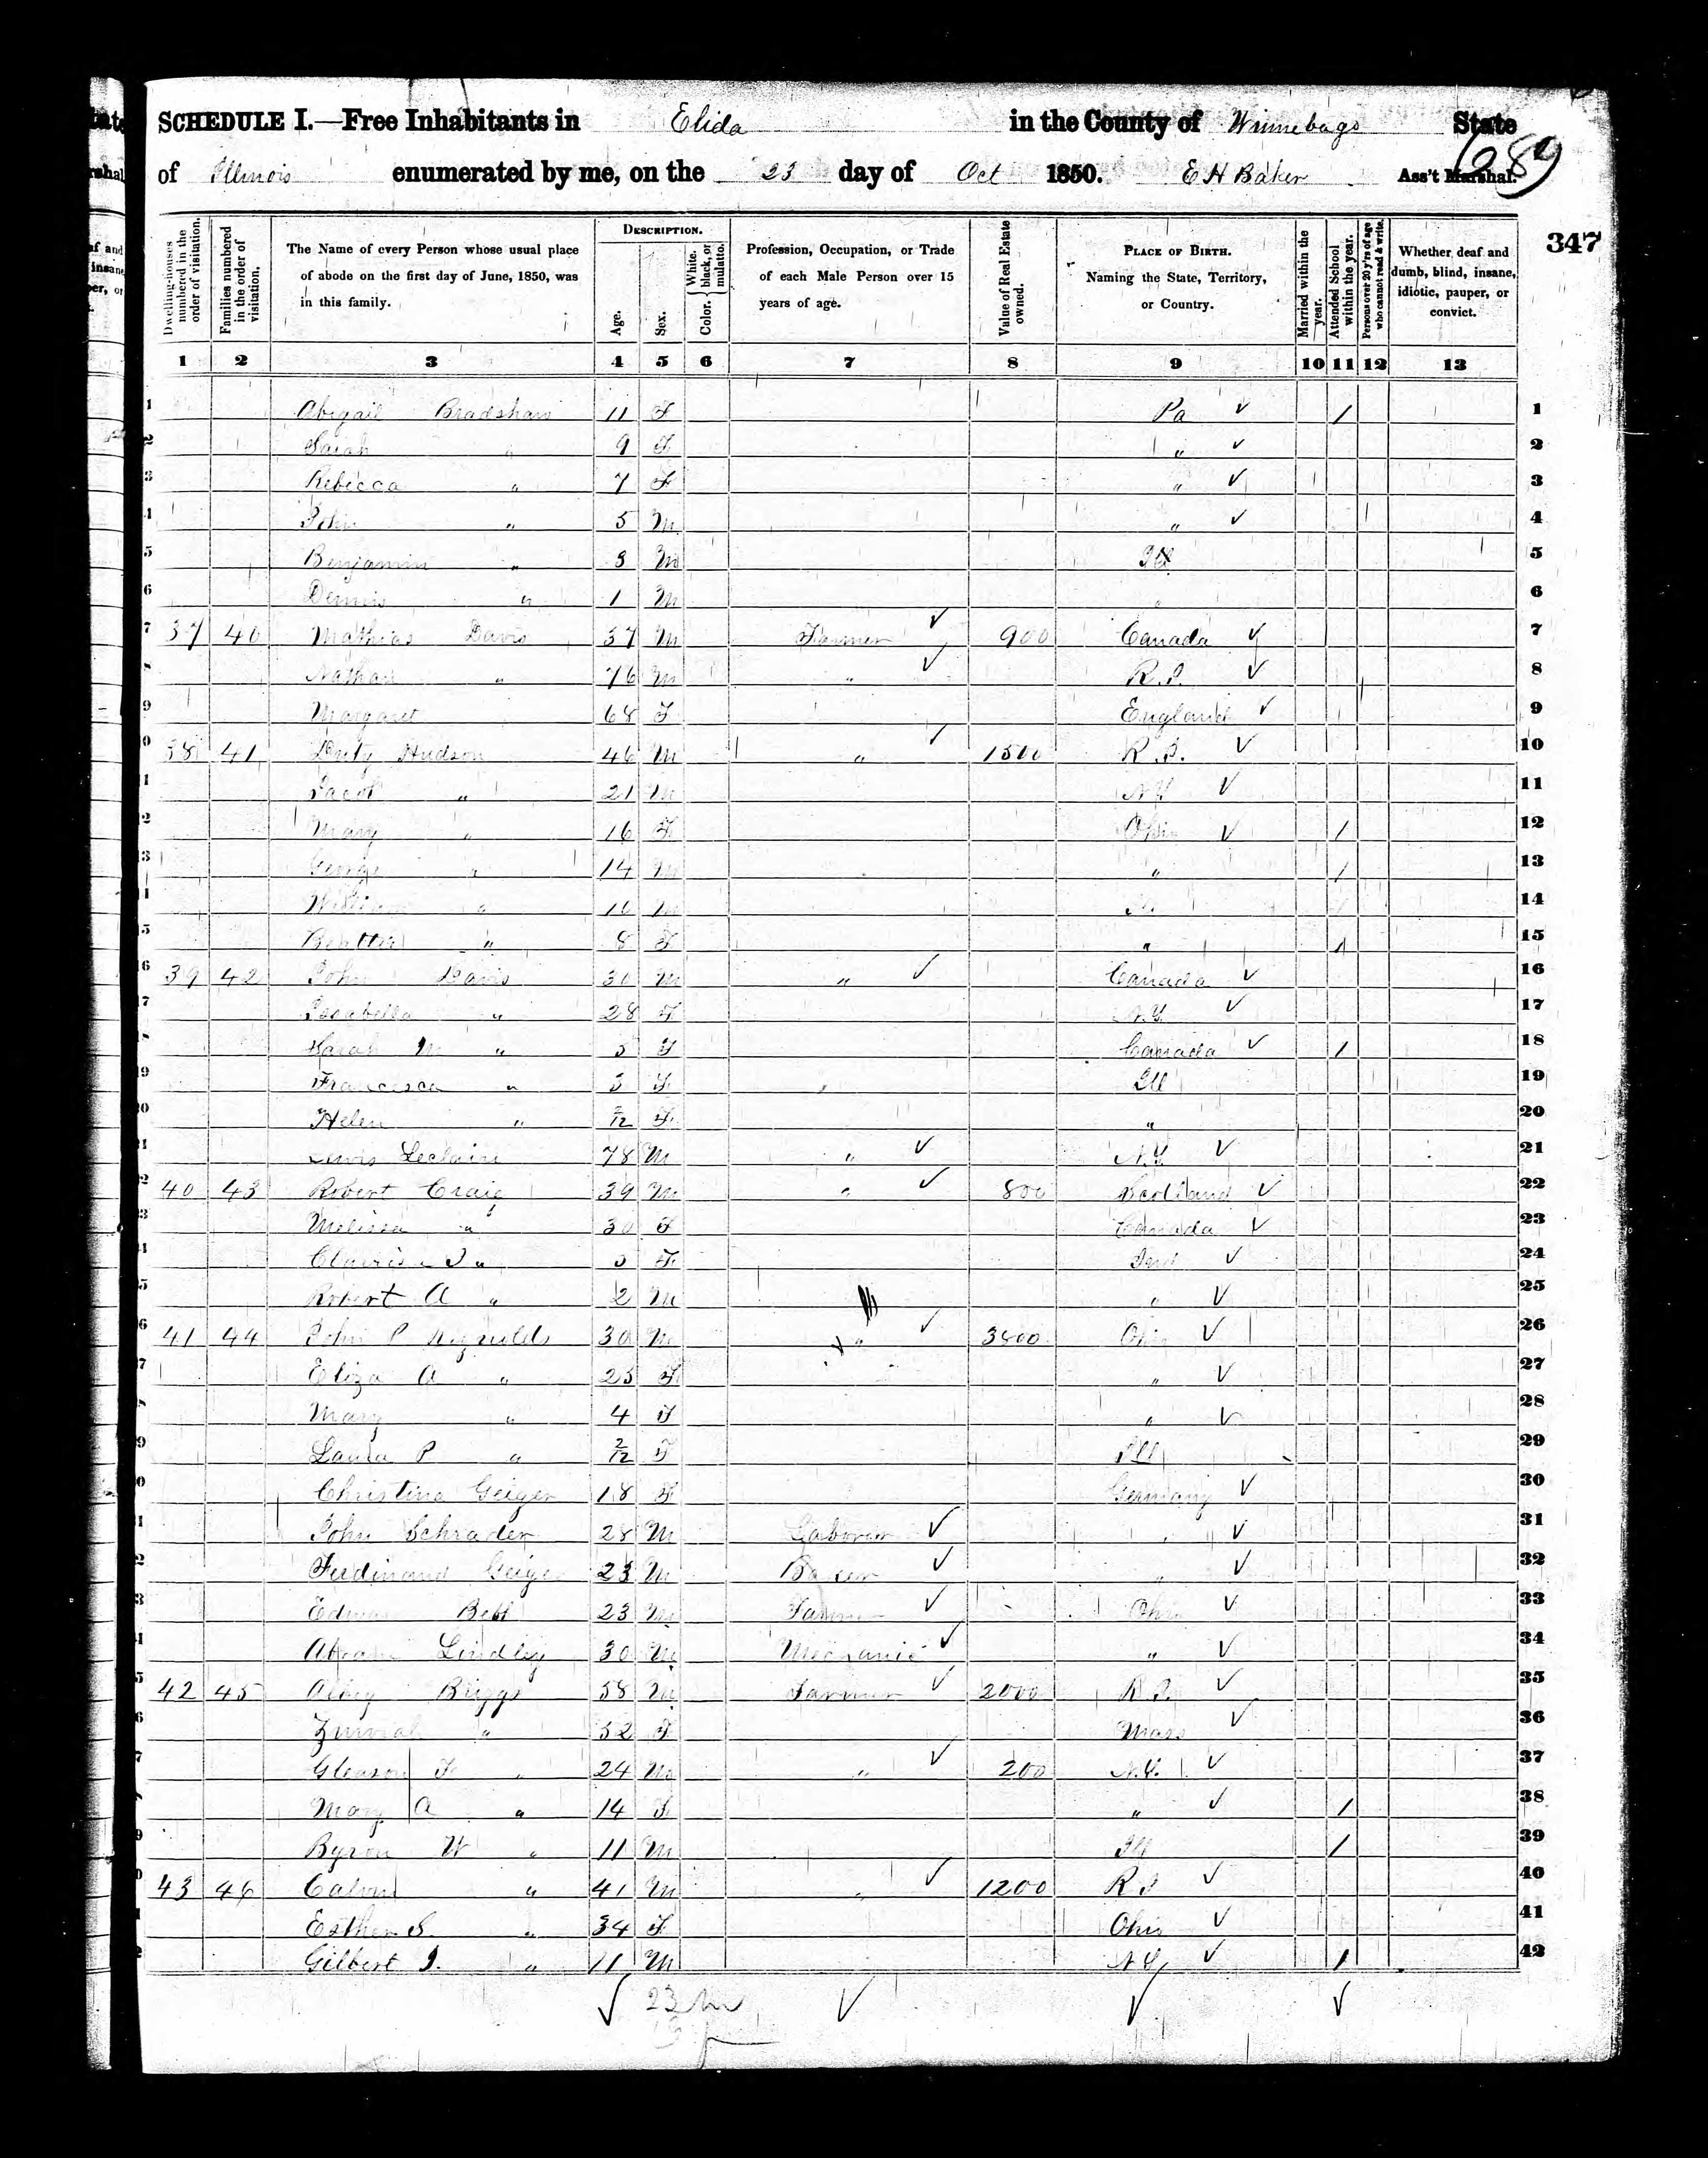 SCHEDULE I.—Free Inhabitants in Elida in the County of Winnebago State
of Illinois enumerated by me, on the 23 day of Oct 1850. E H Baker Ass't Marshal.
289
347
Dwelling-houses numbered in the order of visitation.
Families numbered in the order of visitation.
The Name of every Person whose usual place of abode on the first day of June, 1850, was in this family.
DESCRIPTION.
Age.
Sex.
Color. White, black, or mulatto.
Profession, Occupation, or Trade of each Male Person over 15 years of age.
Value of Real Estate owned.
PLACE OF BIRTH. Naming the State, Territory, or Country.
Married within the year.
Attended School within the year.
Persons over 20 y'rs of age who cannot read & write.
Whether deaf and dumb, blind, insane, idiotic, pauper, or convict.
1 2 3 4 5 6 7 8 9 10 11 12 13
1 Abigail Bradshaw 11 F Pa ✓ / 1
2 Sarah " 9 F " ✓ 2
3 Rebecca " 7 F " ✓ 3
4 John " 5 M " ✓ 4
5 Benjamin " 3 M Ill 5
6 Dennis " 1 M " 6
7 37 40 Mathias Davis 37 M Farmer ✓ 900 Canada ✓ 7
Nathan " 76 M " ✓ R.I. ✓ 8
9 Margaret 68 F England ✓ 9
0 38 41 Duty Hudson 46 M " ✓ 1500 R.I. ✓ 10
1 Jacob " 21 M N.Y ✓ 11
2 Mary " 16 F Ohio ✓ / 12
3 George " 14 M " / 13
William " M Ill 14
5 " 8 F " / 15
6 39 42 John Davis 30 M " ✓ Canada ✓ 16
7 Isabella " 28 F N.Y. ✓ 17
Sarah M " 5 F Canada ✓ / 18
9 Francesca " 3 F Ill 19
0 Helen " 2/12 F " 20
1 Lewis Leclaire 78 M " ✓ N.Y. ✓ 21
2 40 43 Robert Craig 39 M " ✓ 800 Scotland ✓ 22
3 Melissa " 30 F Canada ✓ 23
" F Ind ✓ 24
5 Robert A " 2 M " ✓ 25
6 41 44 John P Reynolds 30 M " ✓ 3800 Ohio ✓ 26
7 Eliza A " 25 F " ✓ 27
Mary " 4 F " ✓ 28
9 Laura P " 2/12 F Ill 29
0 Christina Geiger 18 F Germany ✓ 30
1 John Schrader 28 M Laborer ✓ " ✓ 31
2 Ferdinand Geiger 23 M ✓ " ✓ 32
3 23 M Farmer ✓ Ohio ✓ 33
Lindley 30 M Mechanic ✓ " ✓ 34
5 42 45 Briggs 58 M Farmer ✓ 2000 R.I. ✓ 35
6 Zurviah " 52 F Mass ✓ 36
7 Gleason F " 24 M " ✓ 200 N.Y. ✓ 37
Mary A " 14 F " ✓ / 38
9 Byron W " 11 M Ill / 39
0 43 46 Calvin " 41 M " ✓ 1200 R I ✓ 40
Esther S " 34 F Ohio ✓ 41
2 Gilbert I. " 11 M N.Y. ✓ / 42
✓ 23 m ✓ ✓ ✓